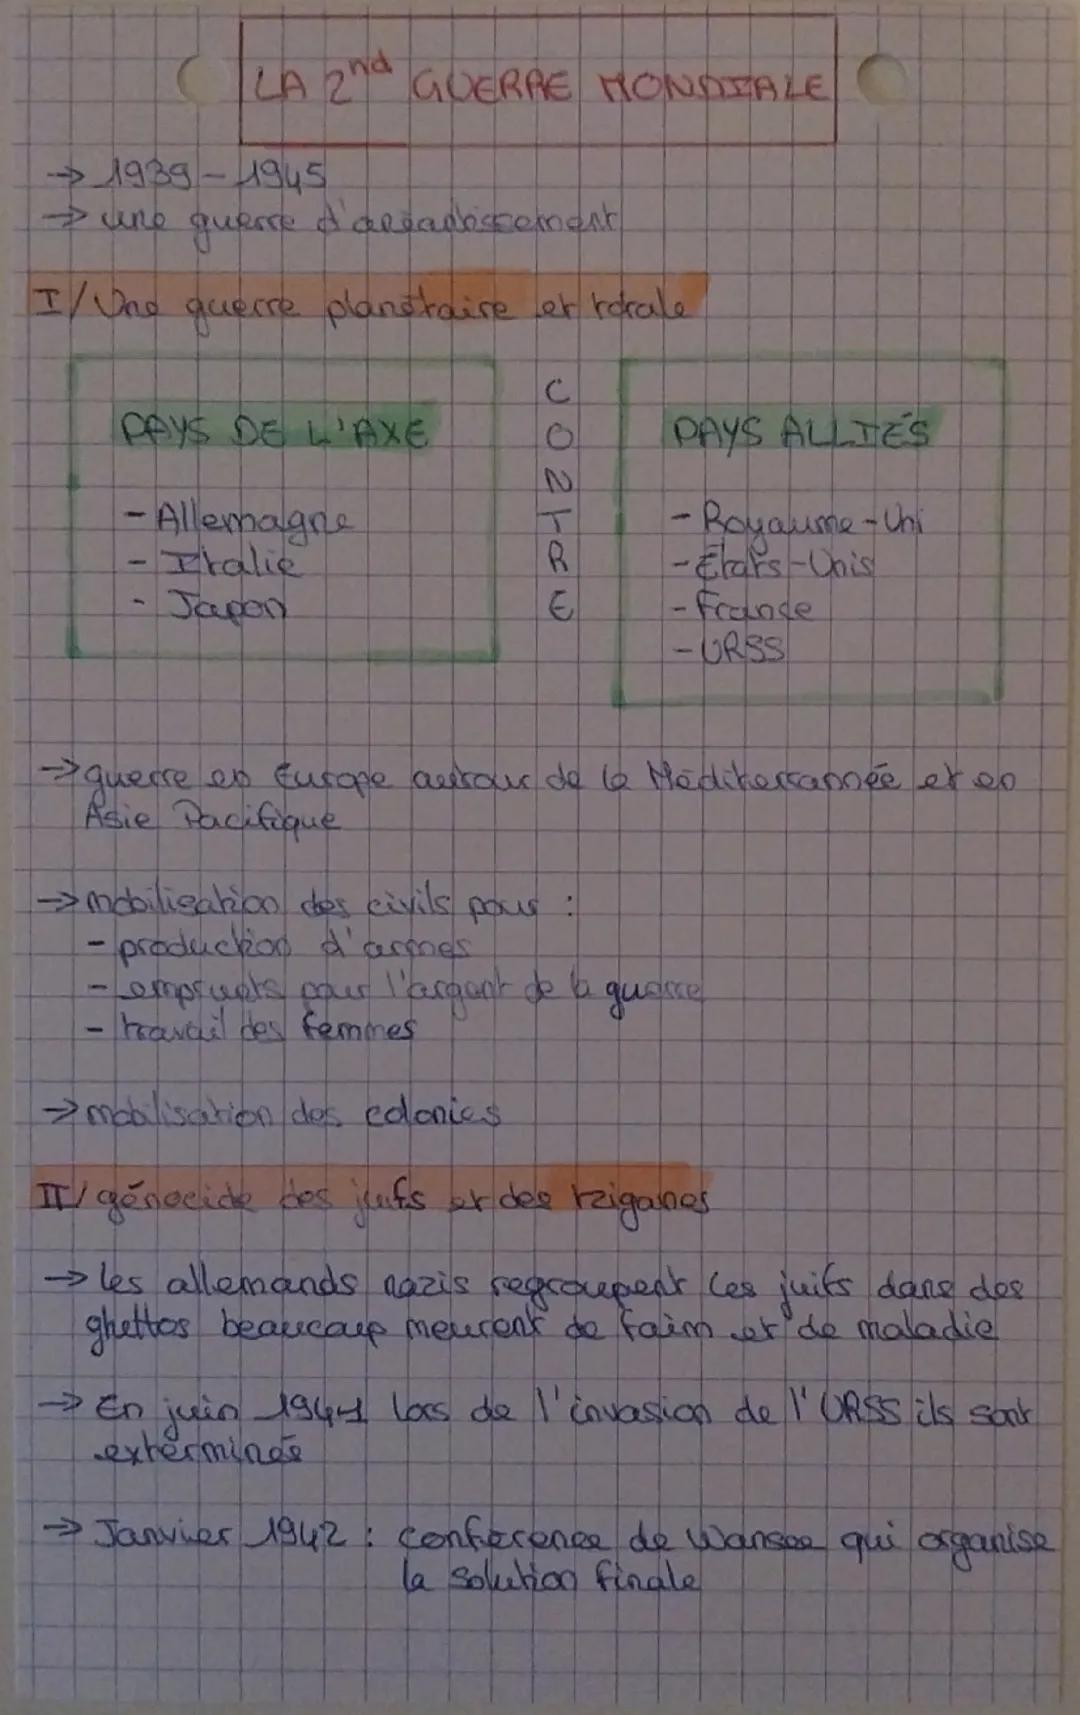 LA 2nd GUERRE MONDIALE
→ 1939-1945
→ une guerre d'anéantissement
I/ Une guerre planétaire et totale
PAYS DE L'AXE
- Allemagne
- Italie
- Japon
CONTRE
PAYS ALLIÉS
- Royaume-Uni
- États-Unis
- France
- URSS
→ guerre en Europe autour de la Méditerrannée et en
Asie Pacifique
→ mobilisation des civils pour :
- production d'armes
- emprunts pour l'argent de la guerre
- travail des femmes
→ mobilisation des colonies
II/ génocide des juifs et des tziganes
→ les allemands nazis regroupent les juifs dans des
ghettos beaucoup meurent de faim et de maladie
→ En juin 1941 lors de l'invasion de l'URSS ils sont
exterminés
→ Janvier 1942 : conférence de Wansee qui organise
la solution finale